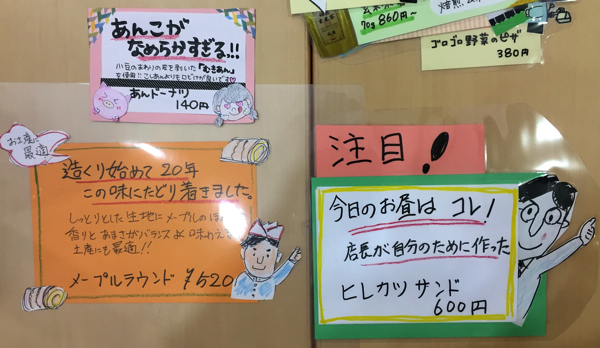 あんこが
なめらかすぎる!!
小豆のまわりの皮を剥いた「むきあん」
を使用!!こしあんよりも口どけが良いです♡
あんドーナツ
140円
70g 860円~
焙煎
ゴロゴロ野菜のピザ
380円
お土産に
最適
造くり始めて20年
この味にたどり着きました。
しっとりとした生地にメープルの
香りとあまさがバランスよく味わえ
土産にも最適!!
メープルラウンド ¥520
注目!
今日のお昼はコレ!
店長が自分のために作った
ヒレカツサンド
600円